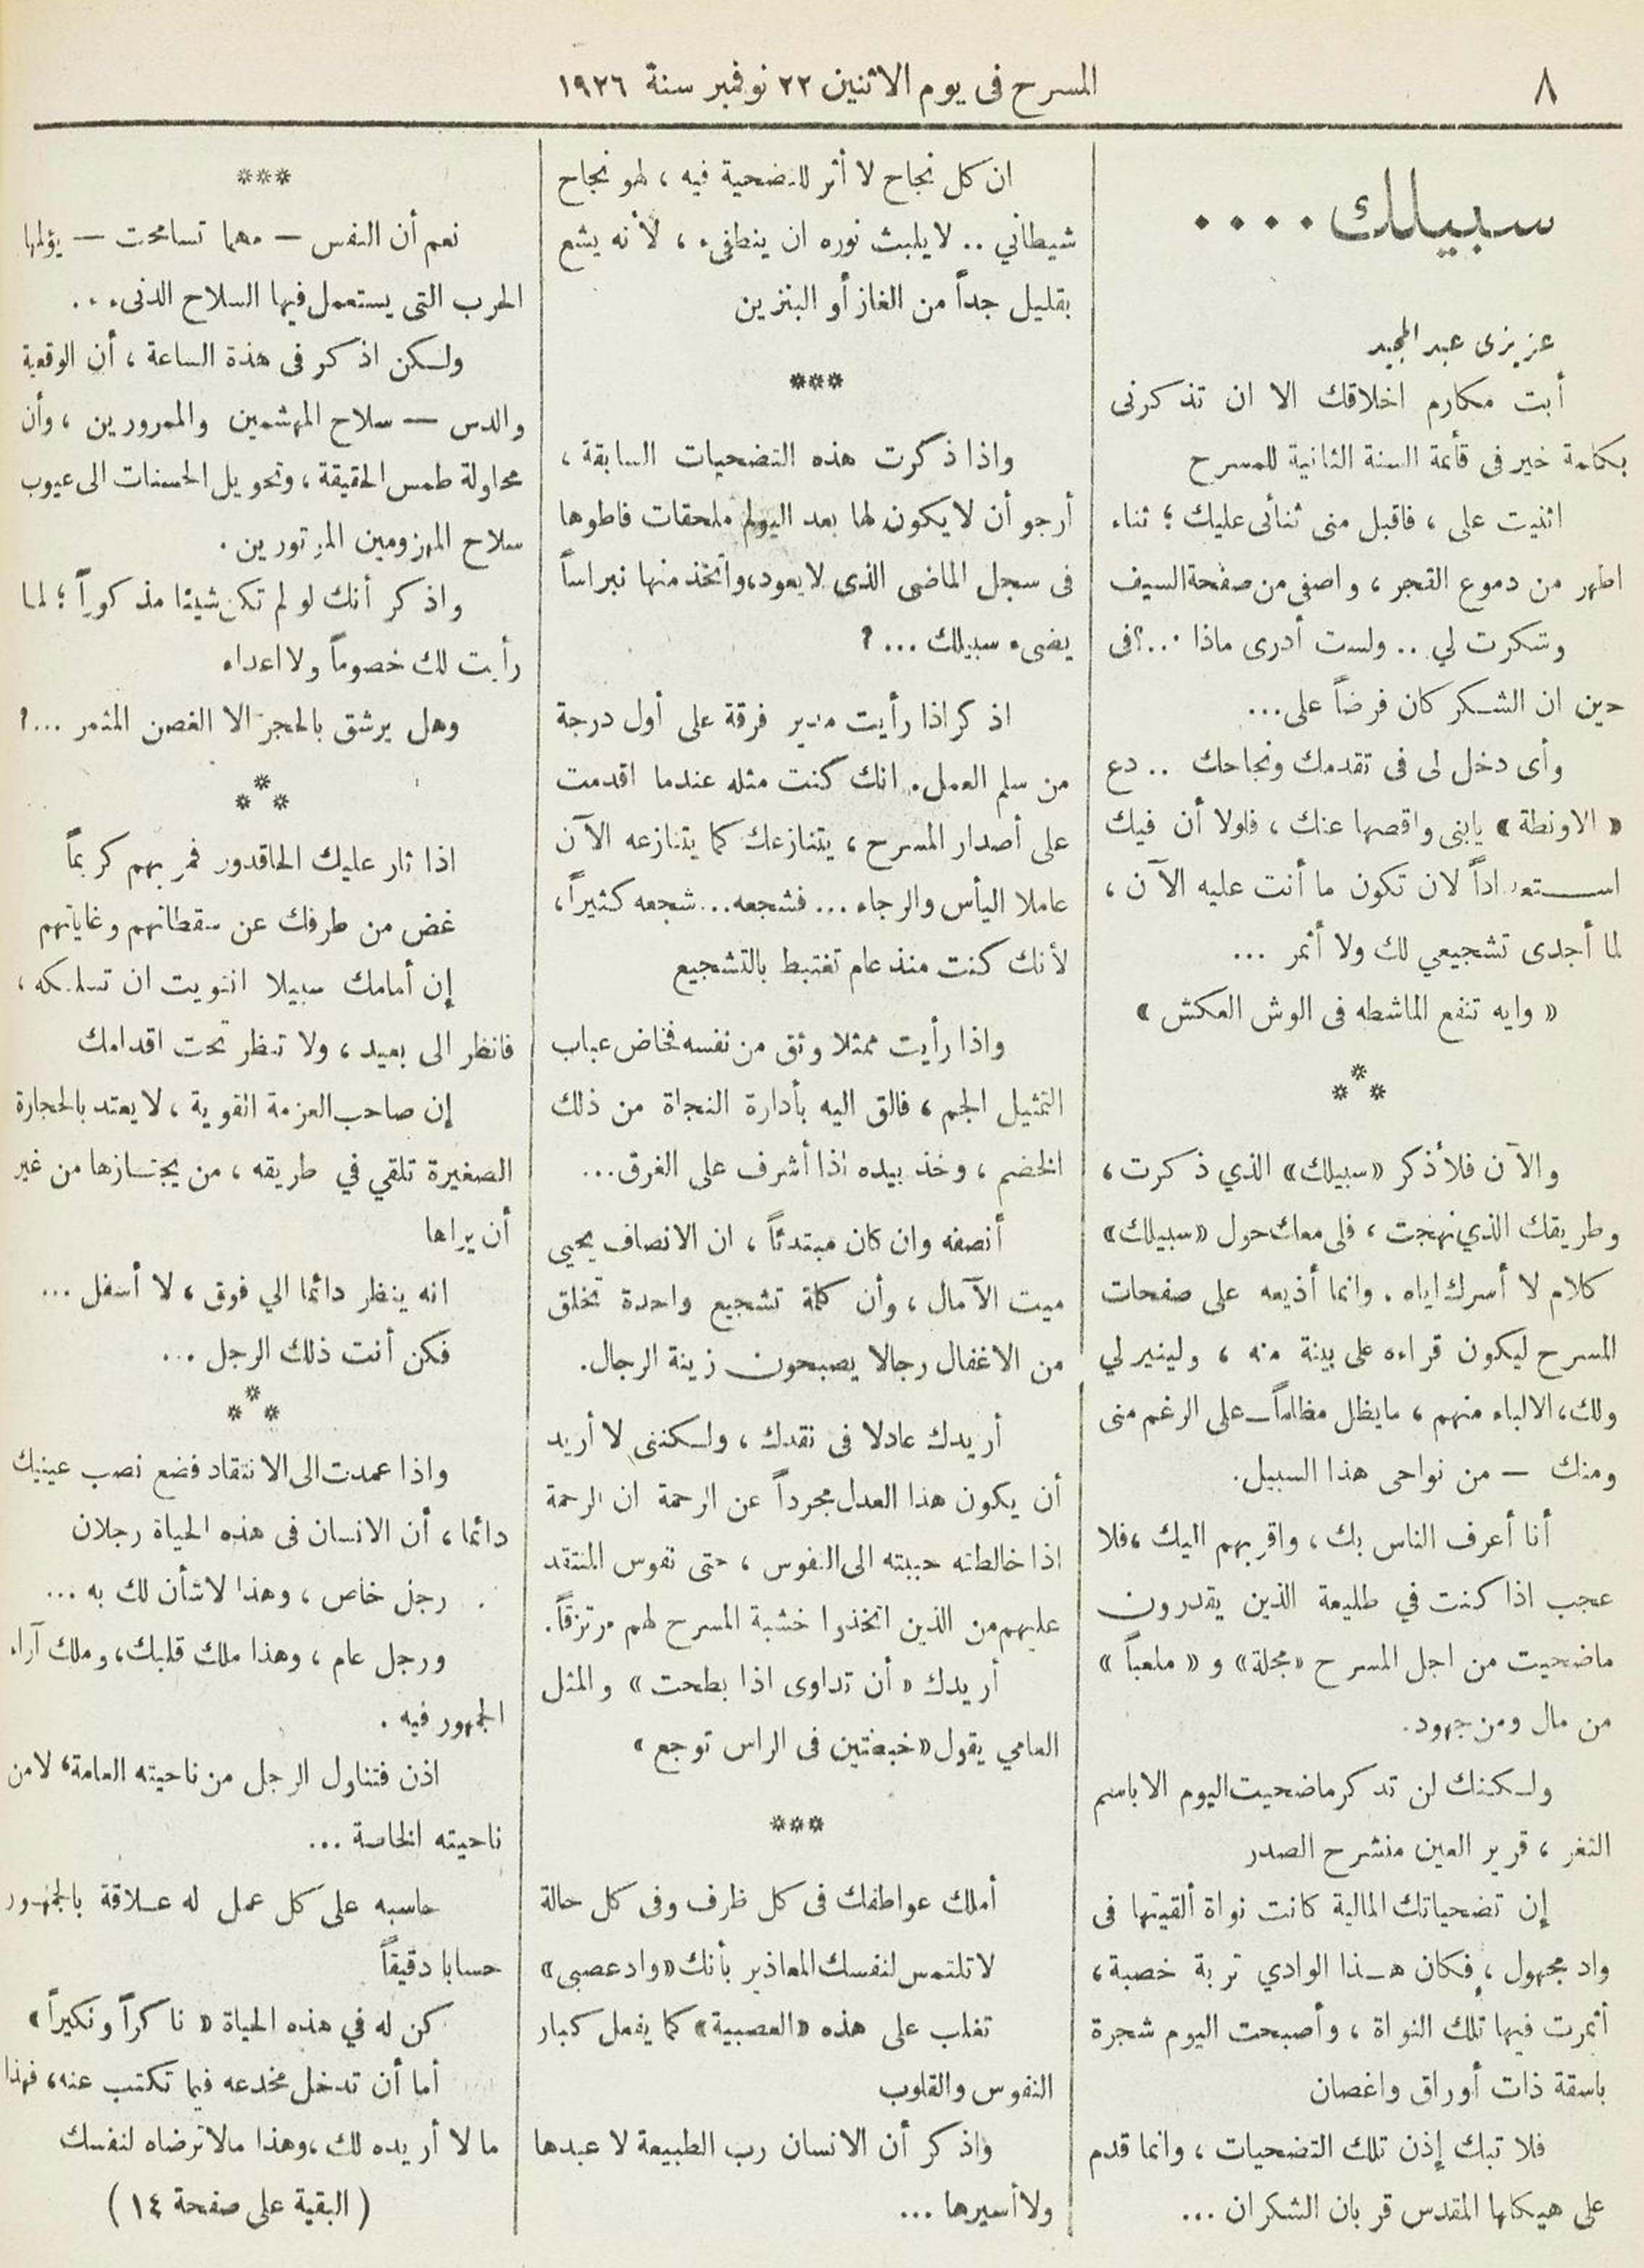 ٨
المسرح فى يوم الاثنين ٢٢ نوفمبر سنة ١٩٢٦
سبيلك ....
عزيزى عبد المجيد
أبت مكارم اخلاقك الا ان تذكرنى
بكلمة خير فى قأئمة السنة الثانية للمسرح
اثنيت على ، فاقبل منى ثنائى عليك ؛ ثناء
اطهر من دموع الفجر ، واصفى من صفحة السيف
وشكرت لي .. ولست أدرى ماذا ..؟ فى
حين ان الشكر كان فرضاً على...
وأى دخل لى فى تقدمك ونجاحك .. دع
« الاونطة » يابنى واقصها عنك ، فلولا أن فيك
استعداداً لان تكون ما أنت عليه الآن ،
لما أجدى تشجيعي لك ولا أثمر ...
« وايه تنفع الماشطه فى الوش العكش »
***
والآن فلأذكر «سبيلك» الذي ذكرت ،
وطريقك الذي نهجت ، فلى معك حول «سبيلك»
كلام لا أسرك اياه . وانما أذيعه على صفحات
المسرح ليكون قراءه على بينة منه ، ولينير لي
ولك، الالباء منهم ، مايظل مظلماً ــ على الرغم منى
ومنك — من نواحى هذا السبيل.
أنا أعرف الناس بك ، واقربهم اليك ، فلا
عجب اذا كنت في طليعة الذين يقدرون
ماضحيت من اجل المسرح «مجلة» و « ملعباً »
من مال ومن جهود.
ولكنك لن تذكر ماضحيت اليوم الا باسم
الثغر ، قرير العين منشرح الصدر
إن تضحياتك المالية كانت نواة ألقيتها فى
واد مجهول ، فكان هذا الوادي تربة خصبة ،
أثمرت فيها تلك النواة ، وأصبحت اليوم شجرة
باسقة ذات أوراق واغصان
فلا تبك إذن تلك التضحيات ، وانما قدم
على هيكلها المقدس قربان الشكران ...
ان كل نجاح لا أثر للتضحية فيه ، لهو نجاح
شيطاني .. لا يلبث نوره ان ينطفىء ، لأنه يشع
بقليل جداً من الغاز أو البنزين
***
واذا ذكرت هذه التضحيات السابقة ،
أرجو أن لا يكون لها بعد اليوم ملحقات فاطوها
فى سجل الماضى الذى لا يعود، واتخذ منها نبراساً
يضىء سبيلك ... ؟
اذكر اذا رأيت مدير فرقة على أول درجة
من سلم العمل. انك كنت مثله عندما اقدمت
على أصدار المسرح ، يتنازعك كما يتنازعه الآن
عاملا اليأس والرجاء ... فشجعه... شجعه كثيراً ،
لأنك كنت منذ عام تغتبط بالتشجيع
واذا رأيت ممثلا وثق من نفسه فخاض عباب
التمثيل الجم ، فالق اليه بأدارة النجاة من ذلك
الخضم ، وخذ بيده اذا أشرف على الغرق ...
أنصفه وان كان مبتدئاً ، ان الانصاف يحيى
ميت الآمال ، وأن كلمة تشجيع واحدة تخلق
من الاغفال رجالا يصبحون زينة الرجال.
أريدك عادلا فى نقدك ، ولكننى لا أريد
أن يكون هذا العدل مجرداً عن الرحمة ان الرحمة
اذا خالطته حببته الى النفوس ، حتى نفوس المنتقد
عليهم من الذين اتخذوا خشبة المسرح لهم مرتزقاً.
أريدك « أن تداوى اذا بطحت » والمثل
العامي يقول « خبطتين فى الراس توجع »
***
أملك عواطفك فى كل ظرف وفى كل حالة
لا تلتمس لنفسك المعاذير بأنك «واد عصبى»
تغلب على هذه «العصبية» كما يفعل كبار
النفوس والقلوب
واذكر أن الانسان رب الطبيعة لا عبدها
ولا أسيرها ...
***
نعم أن النفس — مهما تسامحت — يؤلمها
الحرب التى يستعمل فيها السلاح الدنىء ..
ولكن اذكر فى هذة الساعة ، أن الوقعية
والدس — سلاح المهشمين والممرورين ، وأن
محاولة طمس الحقيقة ، وتحويل الحسنات الى عيوب
سلاح المهزومين الموتورين .
واذكر أنك لو لم تكن شيئا مذكوراً ؛ لما
رأيت لك خصوماً ولا اعداء
وهل يرشق بالحجر الا الغصن المثمر ...؟
***
اذا ثار عليك الحاقدون فمر بهم كريماً
غض من طرفك عن سقطاتهم وغاياتهم
إن أمامك سبيلا انتويت ان تسلكه ،
فانظر الى بعيد ، ولا تنظر تحت اقدامك
إن صاحب العزمة القوية ، لا يعتد بالحجارة
الصغيرة تلقي في طريقه ، من يجتازها من غير
أن يراها
انه ينظر دائما الي فوق ، لا أسفل ...
فكن أنت ذلك الرجل ...
***
واذا عمدت الى الانتقاد فضع نصب عينيك
دائما ، أن الانسان فى هذه الحياة رجلان
رجل خاص ، وهذا لاشأن لك به ...
ورجل عام ، وهذا ملك قلبك، وملك آراء
الجمهور فيه .
اذن فتناول الرجل من ناحيته العامة ، لا من
ناحيته الخاصة ...
حاسبه على كل عمل له علاقة بالجمهور
حسابا دقيقاً
كن له في هذه الحياة « ناكراً ونكيراً »
أما أن تدخل مخدعه فيما تكتب عنه، فهذا
ما لا أريده لك ، وهذا مالا ترضاه لنفسك
( البقية على صفحة ١٤ )